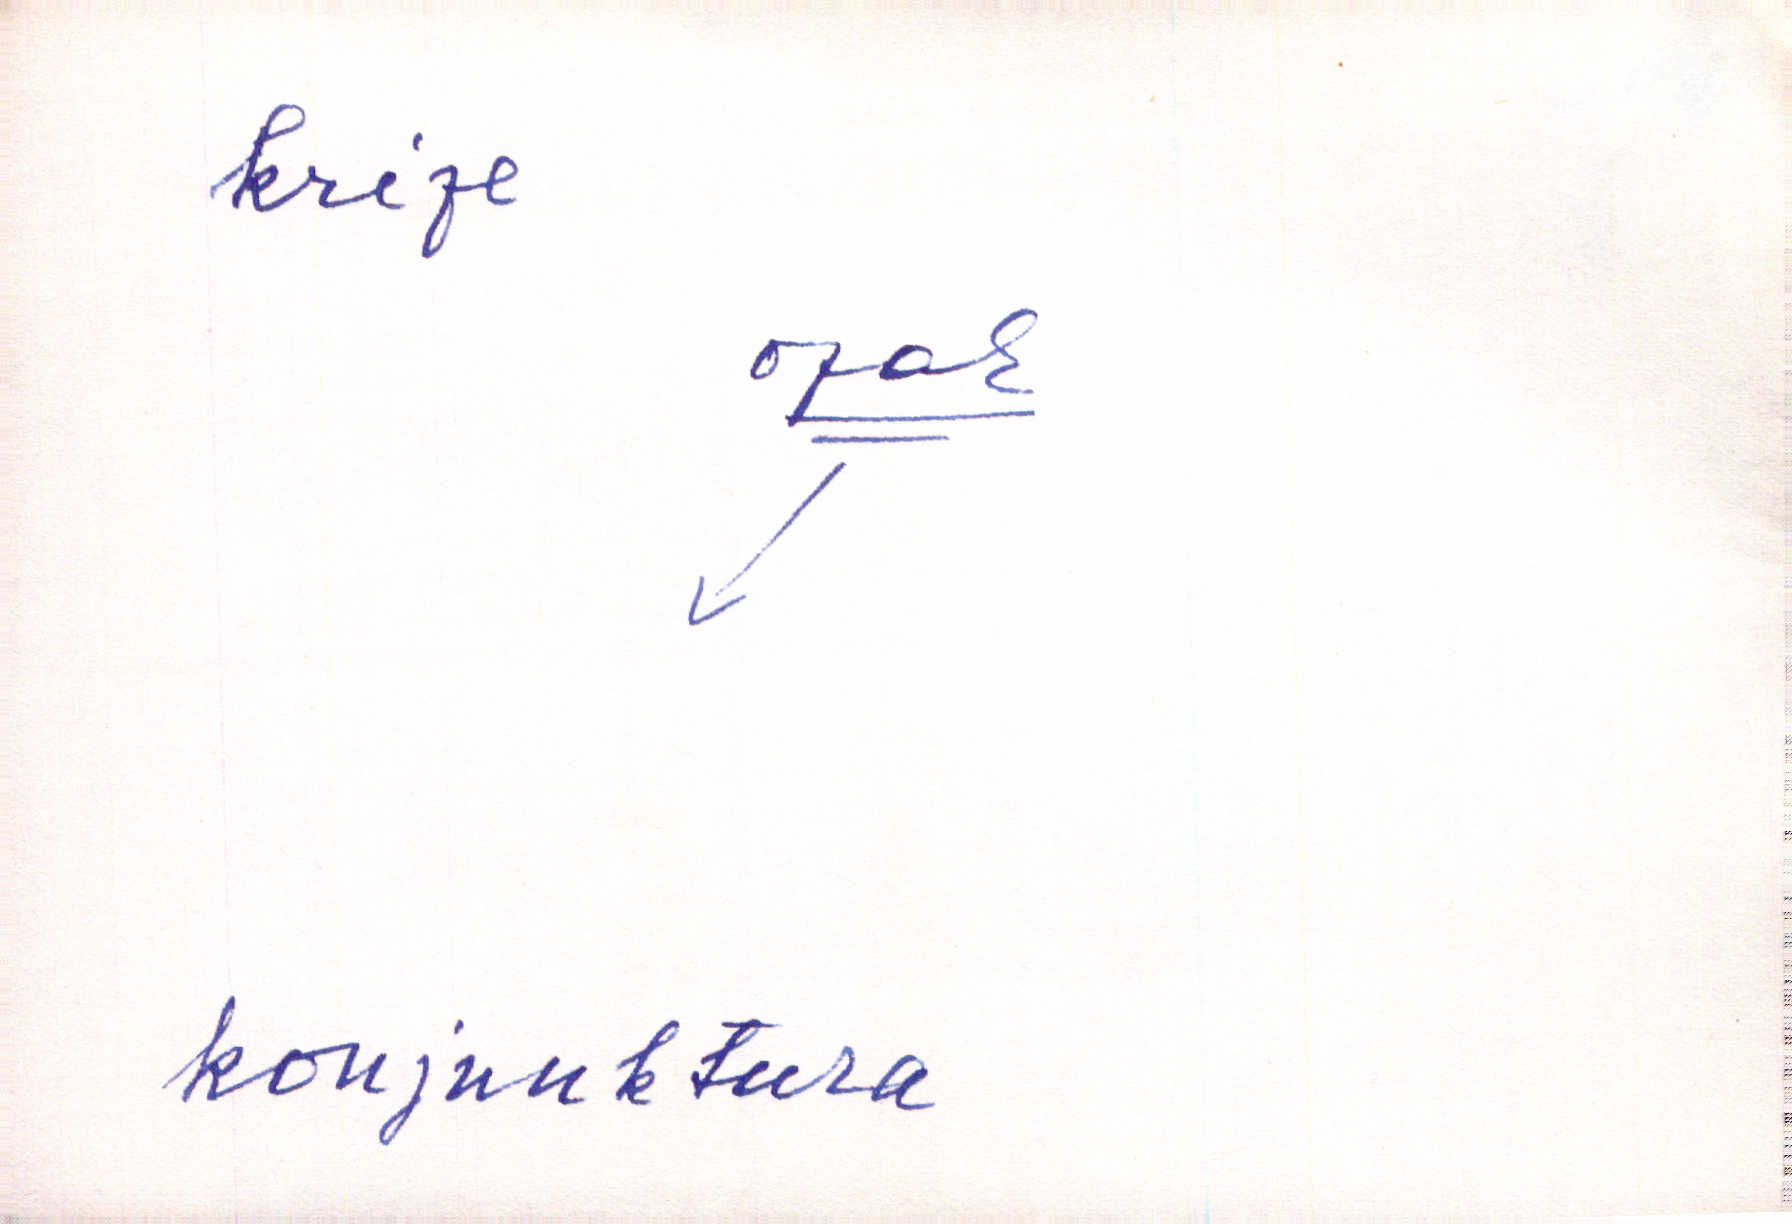 krize
opak
konjunktura